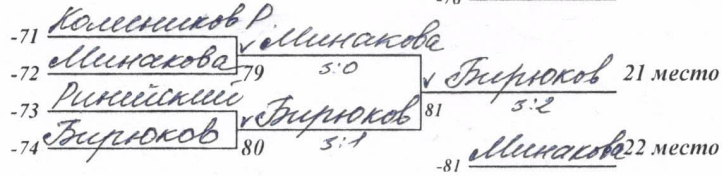 -71 Колесников Р.
-72 Минакова 79 Минакова
3:0
-73 Ринейский
-74 Бирюков 80 Бирюков
3:1
81 Бирюков 21 место
3:2
-81 Минакова 22 место